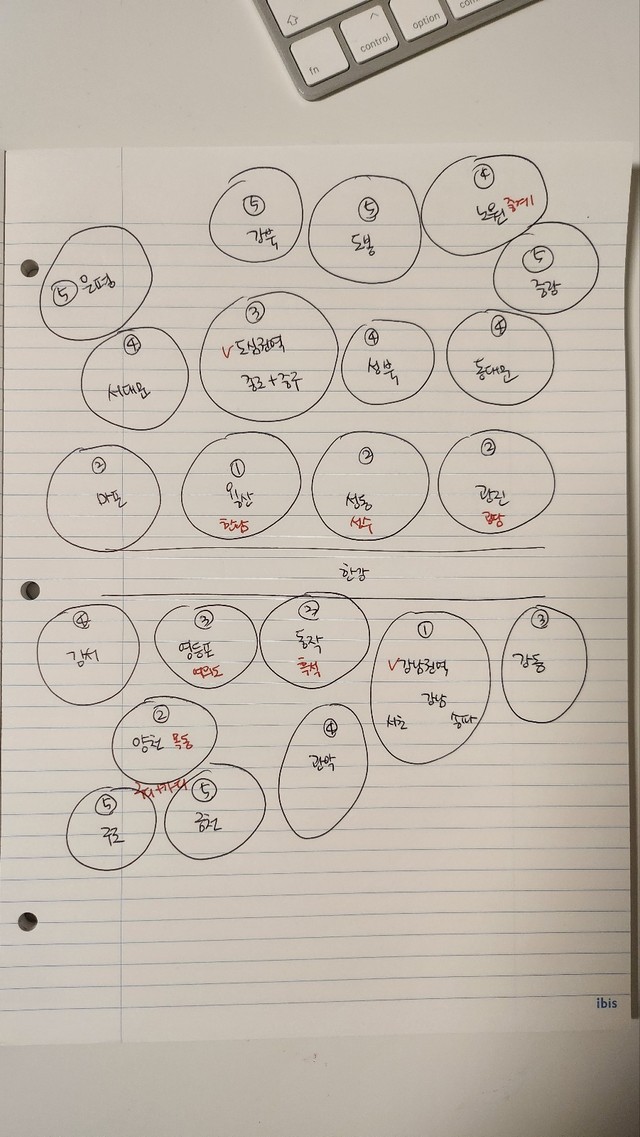 fn
control
option
⑤
강북
⑤
도봉
④
노원 중계
⑤ 은평
⑤
중랑
④
서대문
③
✓도심권역
종로+중구
④
성북
④
동대문
②
마포
①
용산
한남
②
성동
성수
②
광진
광장
한강
④
강서
③
영등포
여의도
②
동작
흑석
①
✓강남권역
강남
서초 송파
③
강동
②
양천 목동
④
관악
구디+가디
⑤
구로
⑤
금천
ibis